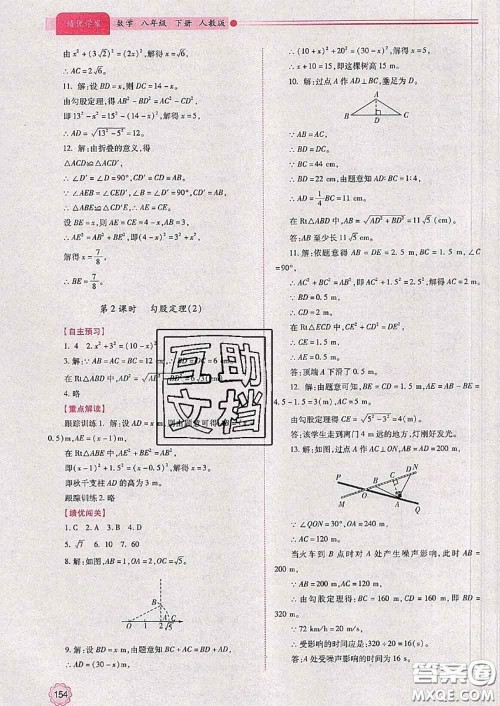 绩优学案 数学 八年级 下册 人教版
由 x²+(3√2)²=(2x)²,得 x=√6.
∴AC=2x=2√6.
11. 解:设 BD=x,则 DC=14-x.
由勾股定理,得 AB²-BD²=AC²-CD²,
即 13²-x²=15²-(14-x)².
解得 x=5.
∴AD=√13²-5²=12.
12. 解:由折叠的意义,得
△ACD≌△ACD′,
∴∠D′=∠D=90°,CD′=CD.
∵∠AEB=∠CED′,∠B=∠D′=90°,AB=CD′,
∴△ABE≌△CD′E,∴AE=CE.
设 BE=x,则 AE=CE=4-x.
∴AE²=AB²+BE²,即(4-x)²=3²+x².
解得 x=7/8.
∴BE=7/8.
第 2 课时 勾股定理(2)
【自主预习】
1. 4 2. x²+3²=(10-x)²
3. 解:∵AB=AC=BC=12 cm,
∴BD=DC=6 cm.
在 Rt△ABD 中,AD=
4. 略
【重点解读】
跟踪训练 1. 解:设 AD=x m,则由题意可得
0.5)m,AE=3-1=
在 Rt△ABE 中,AE²+BE²=AB²,
即(x-0.5)²+1.5²=x²,
即秋千支柱 AD 的高为 3 m.
跟踪训练 2. 略
【绩优闯关】
1. C 2. A 3. B 4. D
5. √7 6. 10 7. 60
8. 解:如图,AB=1,OA=2,OC=√5.
B A C 0 1 2 √5
9. 解:设 BD=x m,由题意知 BC+AC=BD+DA,
∴AD=(30-x)m.
∴x=5.
∴x+10=15,即这棵树高 15 m.
10. 解:过点 A 作 AD⊥BC,垂足为 D.
A B D C
∵AB=AC,
∴BD=CD.
∵BC=44 cm,
∴BD=22 cm,由题意知 AD∶BC=1∶4,
∴AD=1/4 BC=11 cm.
在 Rt△ABD 中,AB=√AD²+BD²=11√5(cm).
答:AB 至少长 11√5 cm.
11. 解:依题意得 AB=DE=2.5 m,BC=1.5 m,∠C=90°,
∴AC²+BC²=AB²,即 AC²+1.5²=2.5²,解得 AC=2 m.
∵BD=0.5 m,
∴CD=2 m.
在 Rt△ECD 中,CE²+CD²=DE²,
∴CE=1.5 m,
∴AE=0.5 m.
答:顶端 A 下滑了 0.5 m.
12. 解:由题意可知
4.5-1.5=3(m).
由勾股定理得 CE=√5²-3²=4(m).
答:该学生走到离门 4 m 远的地方,灯刚好发光.
13. 解:如图,过点 A 作 AC⊥
P D N C B O A M Q
∵∠QON=30°,OA=240 m,
∴AC=120 m.
当火车到 B 点时对 A 处产生噪声影响,此时 AB=200 m,
∵AB=200 m,AC=120 m,
∴由勾股定理得:BC=160 m,CD=160 m,即 BD=320 m.
∵72 km/h=20 m/s,
∴受影响的时间应是:320÷20=16(s).
答:A 处受噪声影响的时间为 16 s.
154
互助文档
答案圈
MXQE.COM